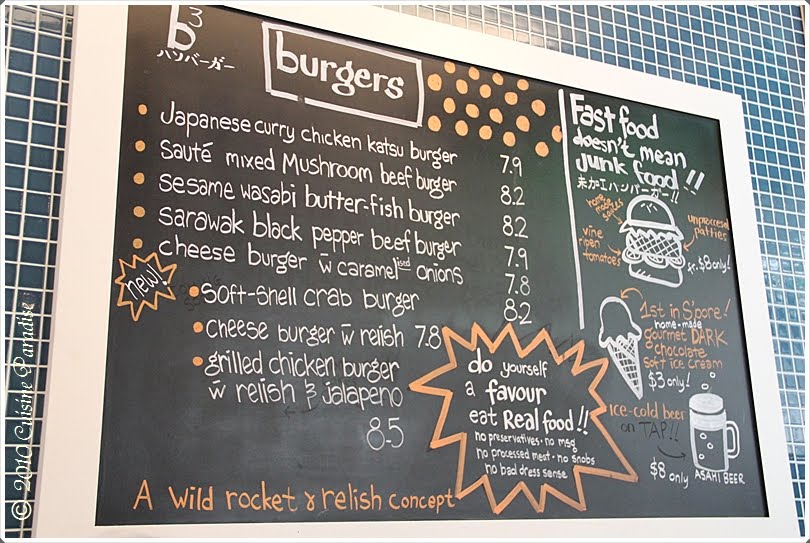 b3
ハンバーガー
burgers
Japanese curry chicken katsu burger 7.9
sauté mixed Mushroom beef burger 8.2
sesame wasabi butter-fish burger 8.2
sarawak black pepper beef burger 7.9
cheese burger w̄ caramelised onions 7.8
new!
soft-shell crab burger 8.2
cheese burger w̄ relish 7.8
grilled chicken burger
w̄ relish & jalapeno
8.5
A wild rocket & relish concept
do yourself
a favour
eat Real food!!
no preservatives · no msg
no processed meat · no snobs
no bad dress sense
Fast food
doesn't mean
junk food!!
未加工ハンバーガー!!
home
made
sauces
unprocessed
patties
vine
ripen
tomatoes
fr. $8 only!
1st in S'pore!
home-made
gourmet DARK
chocolate
soft ice cream
$3 only!
ice-cold beer
on TAP!!
$8 only
ASAHI BEER
© 2010 Cuisine Paradise